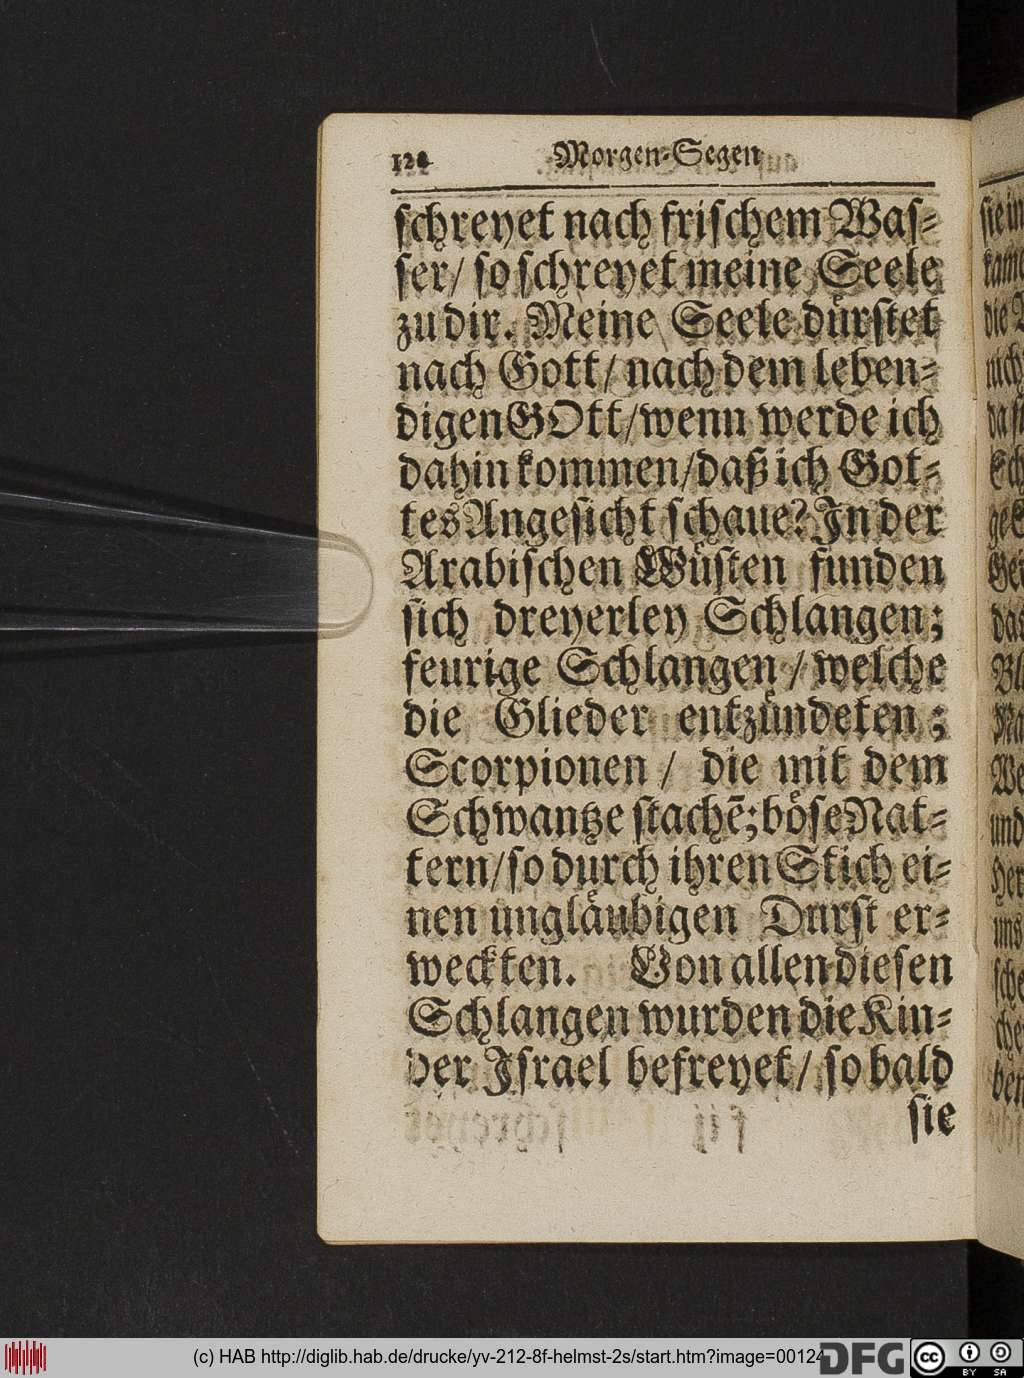 Morgen-Segen
schreyet nach frischem Was-
ser/ so schreyet meine Seele
zu dir. Meine Seele dürstet
nach Gott/ nach dem leben-
digen GOtt/wenn werde ich
dahin kommen/daß ich Got-
tes Angesicht schaue? In der
Arabischen Wüsten funden
sich dreyerley Schlangen;
feurige Schlangen / welche
die Glieder entzündeten;
Scorpionen / die mit dem
Schwantze stachē; böse Nat-
tern/so durch ihren Stich ei-
nen ungläubigen Durst er-
weckten. Von allen diesen
Schlangen wurden die Kin-
der Israel befreyet/ so bald
sie
(c) HAB http://diglib.hab.de/drucke/yv-212-8f-helmst-2s/start.htm?image=00124
DFG
cc BY SA